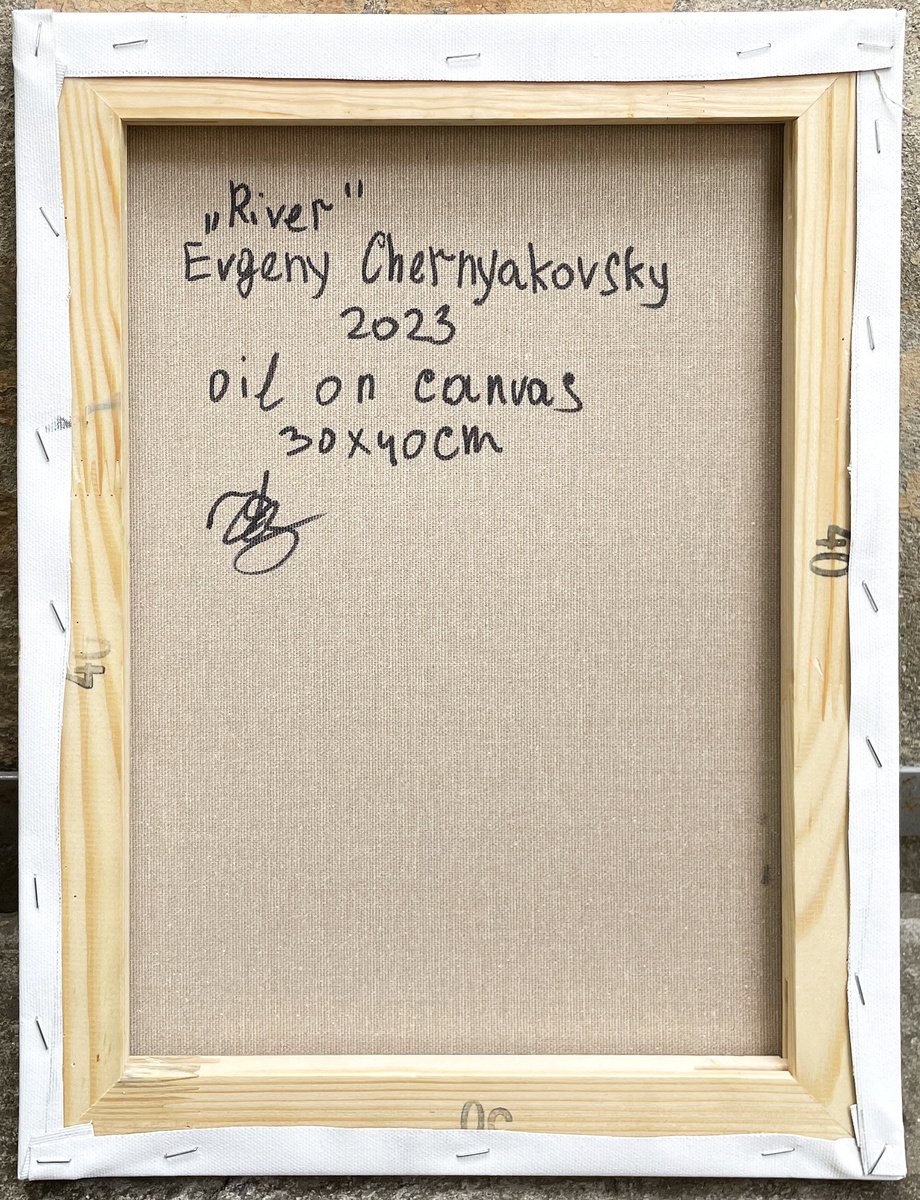 „River"
Evgeny Chernyakovsky
2023
oil on canvas
30x40cm
40
40